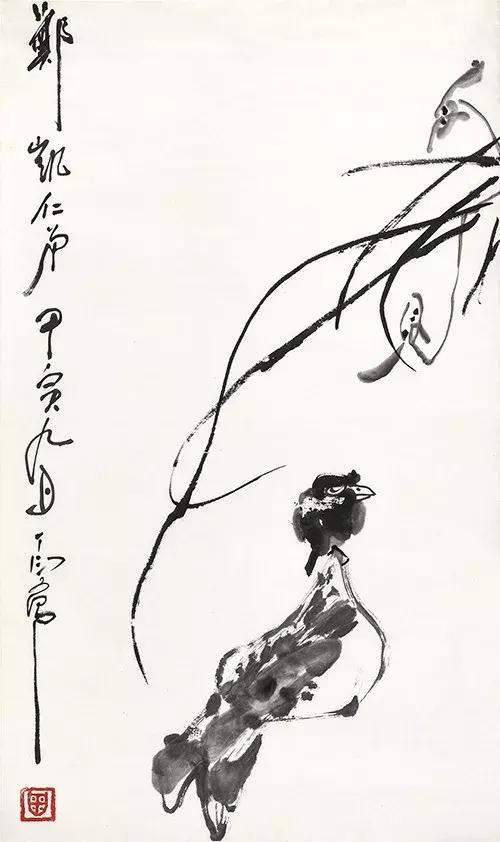 鄭凱仁弟甲寅九月丁衍庸